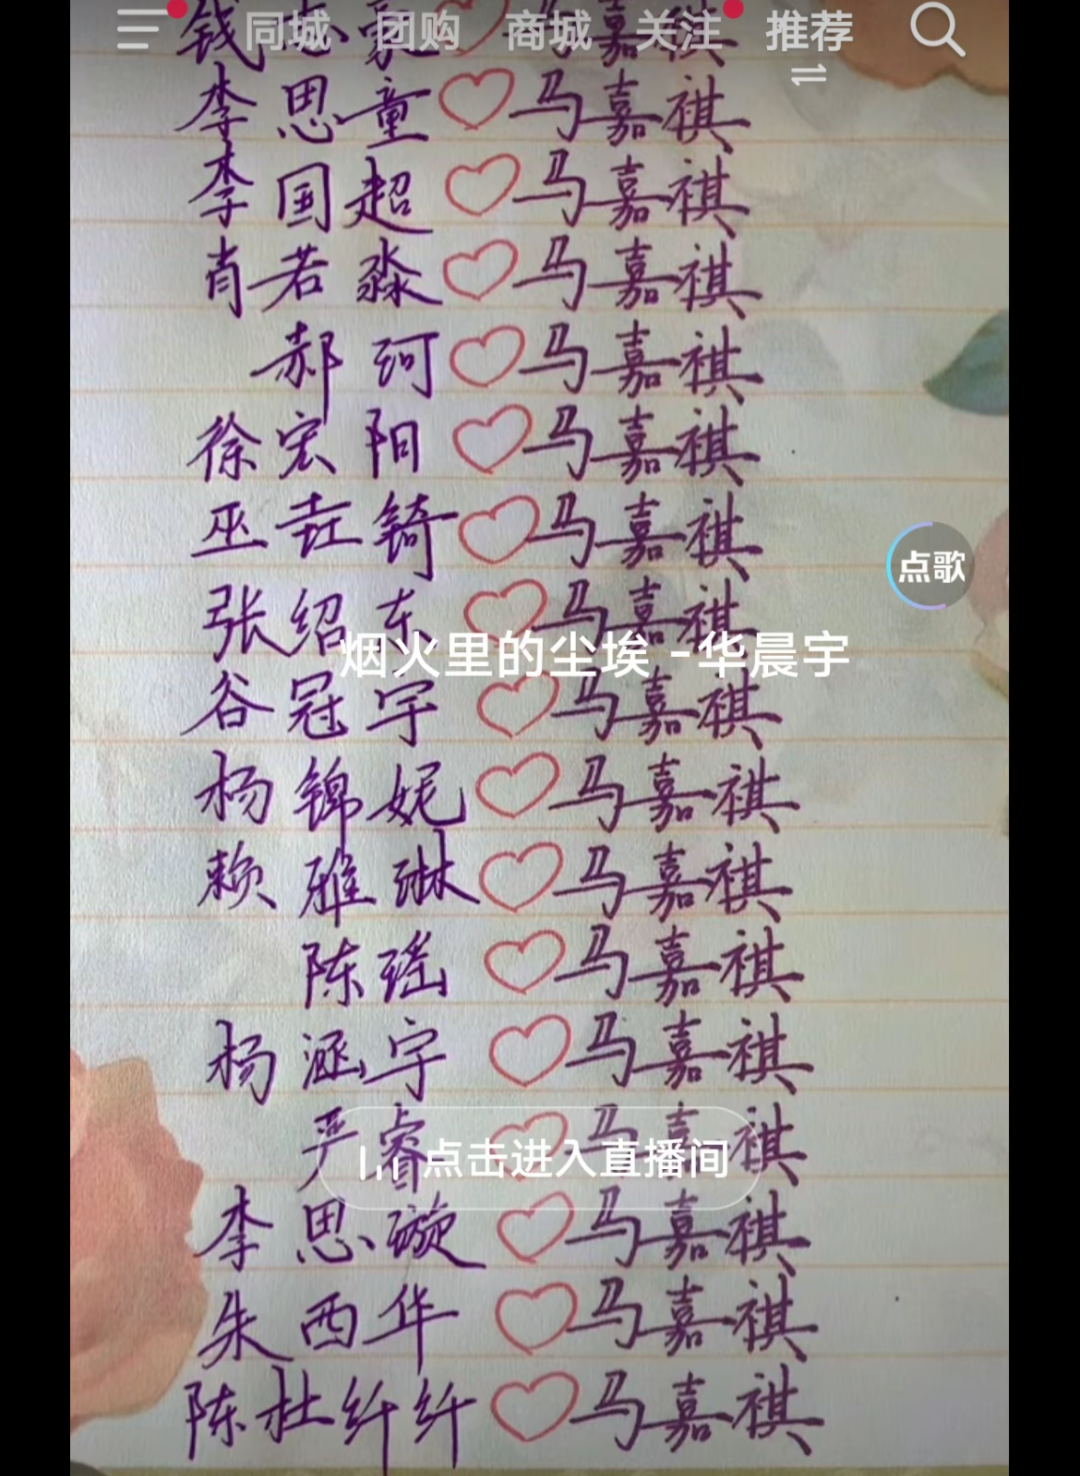 同城 团购 商城 关注 推荐
钱志豪♡马嘉祺
李思童♡马嘉祺
李国超♡马嘉祺
肖若淼♡马嘉祺
郝珂♡马嘉祺
徐宏阳♡马嘉祺
巫垚锜♡马嘉祺
点歌
张绍东♡马嘉祺
烟火里的尘埃 -华晨宇
谷冠宇♡马嘉祺
杨锦妮♡马嘉祺
赖雅琳♡马嘉祺
陈瑶♡马嘉祺
杨涵宇♡马嘉祺
严睿♡马嘉祺
点击进入直播间
李思璇♡马嘉祺
朱西华♡马嘉祺
陈杜纤纤♡马嘉祺